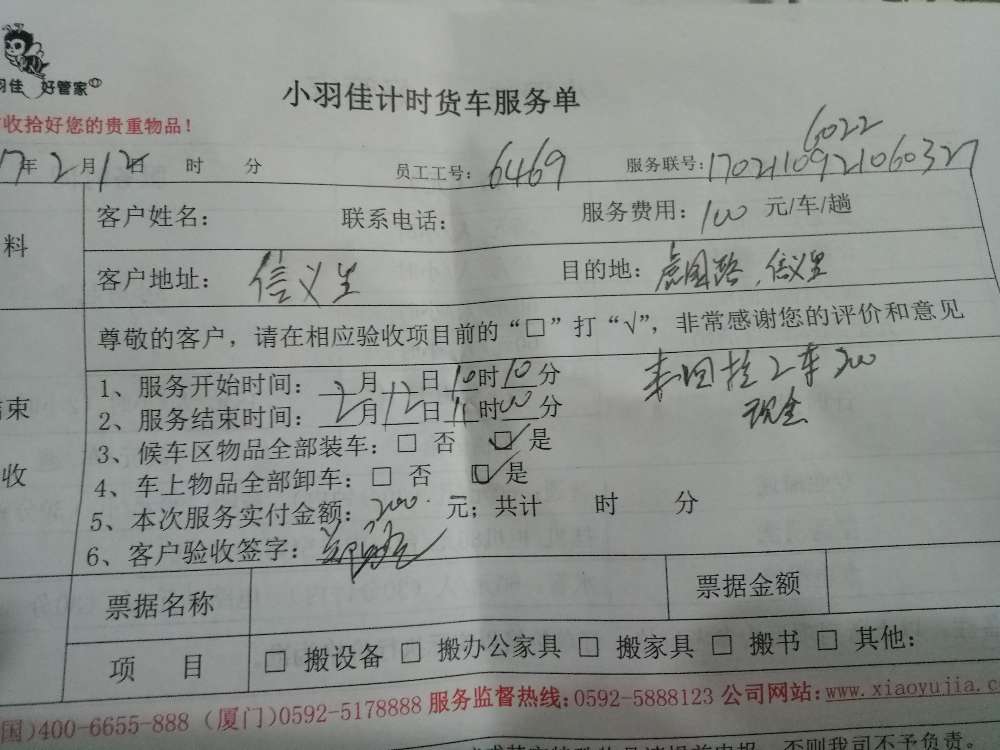 羽佳 好管家
小羽佳计时货车服务单
收拾好您的贵重物品！
17年2月12日 时 分 员工工号：6469 服务联号：1702110921060327
6022
料 客户姓名： 联系电话： 服务费用：100元/车/趟
客户地址：信义里 目的地：虎园路，信义里
尊敬的客户，请在相应验收项目前的“□”打“√”，非常感谢您的评价和意见
束 1、服务开始时间：2月12日10时10分
2、服务结束时间：2月12日11时00分
来回 2车200
现金
3、候车区物品全部装车：□ 否 ☑ 是
收 4、车上物品全部卸车：□ 否 ☑ 是
5、本次服务实付金额：200元；共计 时 分
6、客户验收签字：
票据名称 票据金额
项 目 □ 搬设备 □ 搬办公家具 □ 搬家具 □ 搬书 □ 其他：
国)400-6655-888（厦门)0592-5178888 服务监督热线:0592-5888123 公司网站:www.xiaoyujia.c
否则我司不予负责。